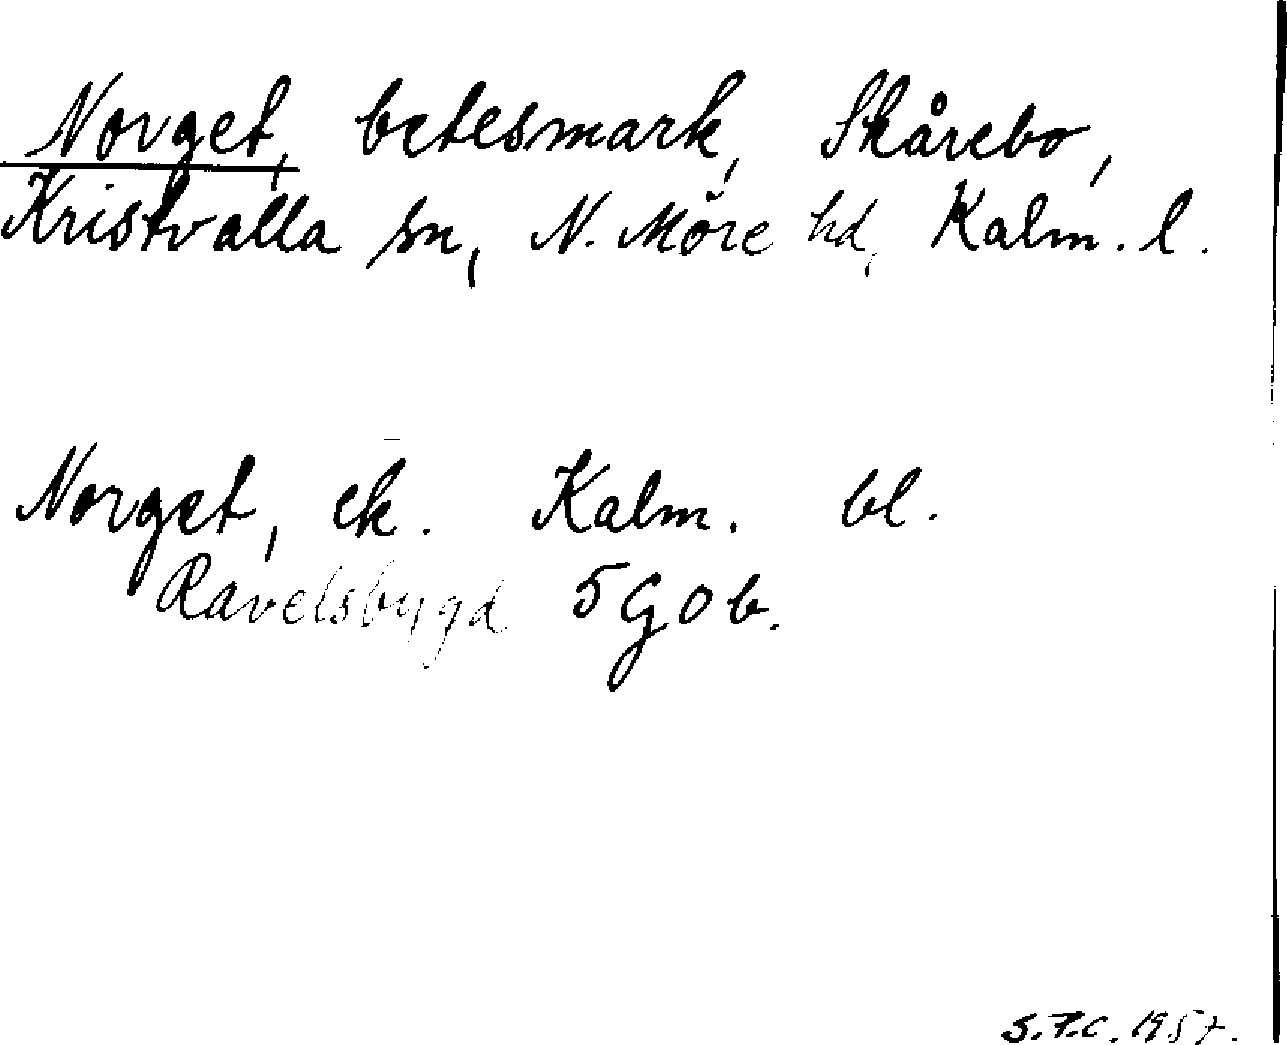 Norget, betesmark, Skårebo,
Kristvalla sn, N. Möre hd, Kalm. l.
Norget, ek. Kalm. bl.
Ravelsbygd 5 G o b.
S.F.C. 1957.